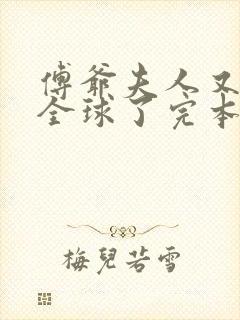 傅爺夫人又
全球了完本
梅兒若雪